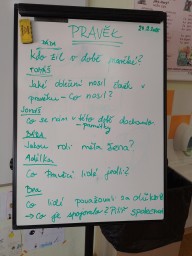 PRAVĚK
Kdo žil v době pravěké?
TOMÁŠ
Jaké oblečení nosil člověk v
pravěku - Co nosil?
Co se nám v této době dochovalo
památky
Jakou roli měla žena?
Adélka
Co Pravěcí lidé jedli?
Co lidé považovali za důležité
→ Co je spojovalo?